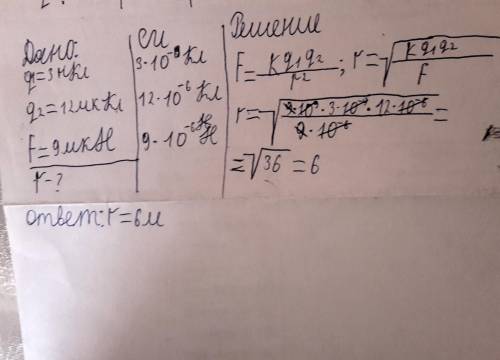 Дано:
q₁=3нКл
q₂=12мкКл
F=9мкН
r-?
СИ
3·10⁻⁹Кл
12·10⁻⁶Кл
9·10⁻⁶Н
Решение
F=kq₁q₂/r²; r=√(kq₁q₂/F)
r=√(9·10⁹·3·10⁻⁹·12·10⁻⁶/9·10⁻⁶)=
=√36=6
ответ: r=6м